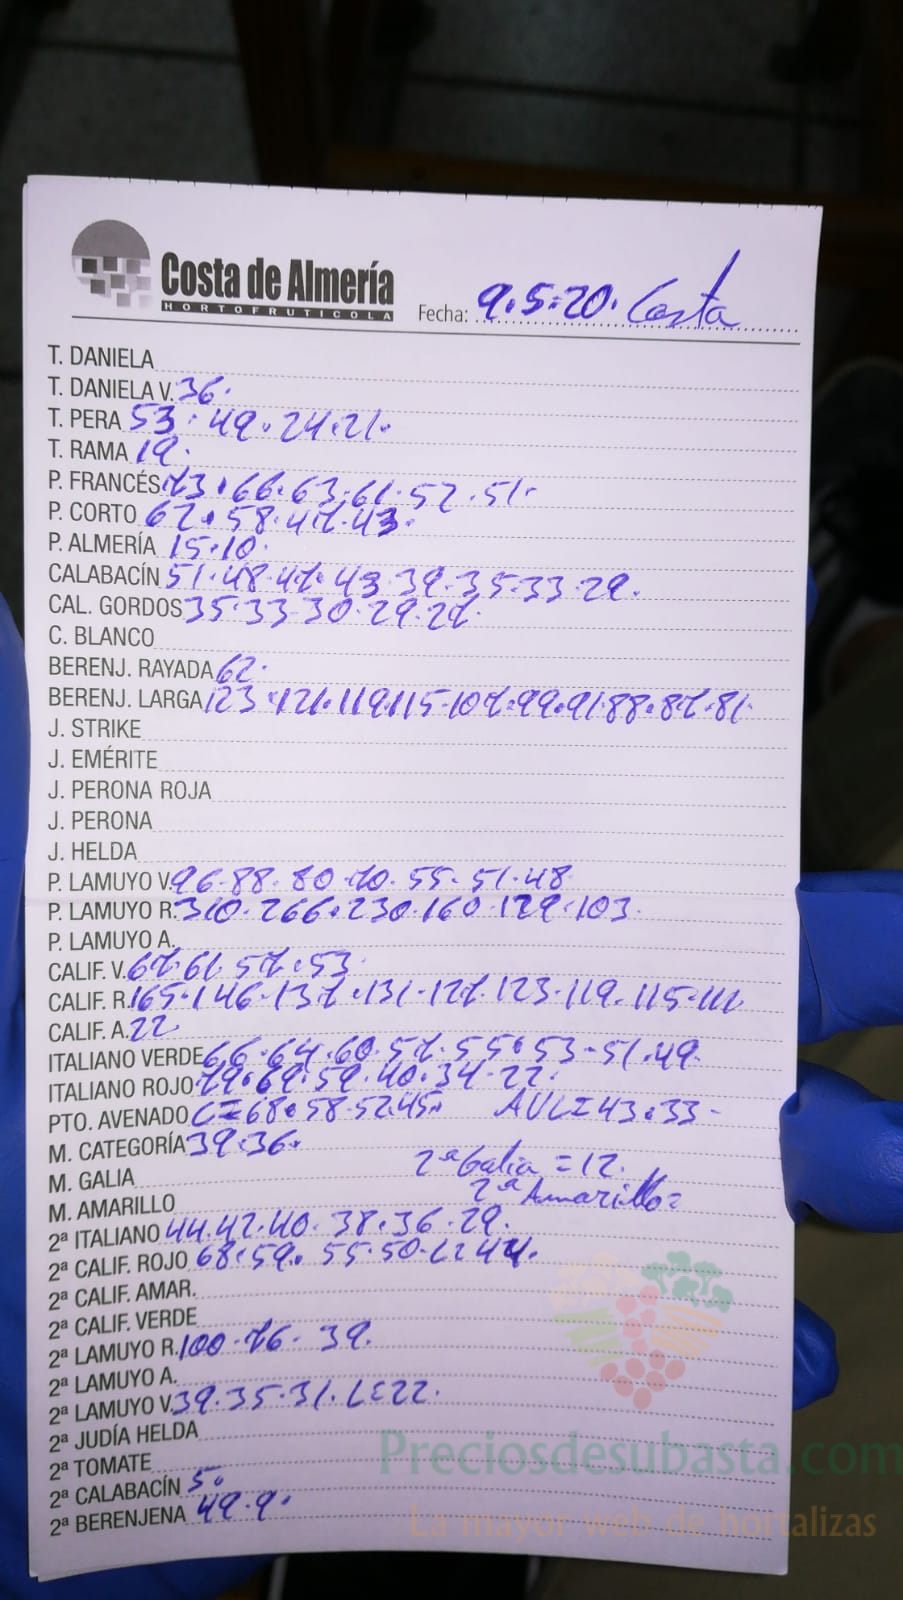 Costa de Almería
HORTOFRUTICOLA
Fecha: 9.5.20. Costa
T. DANIELA
T. DANIELA V. 36.
T. PERA 53. 49. 24.21.
T. RAMA 19.
P. FRANCÉS 73. 66. 63. 61. 52. 51.
P. CORTO 62. 58. 47. 43.
P. ALMERÍA 15.10.
CALABACÍN 51.48.47.43 39.35.33.29.
CAL. GORDOS 35.33.30.29.27.
C. BLANCO
BERENJ. RAYADA 62.
BERENJ. LARGA 123.121.119.115.107.99.91.88.87.81.
J. STRIKE
J. EMÉRITE
J. PERONA ROJA
J. PERONA
J. HELDA
P. LAMUYO V. 96.88.80.70.55.51.48
P. LAMUYO R. 310.266.230.160.129.103.
P. LAMUYO A.
CALIF. V. 67.61.57.53.
CALIF. R. 165.146.137.131.127.123.119.115.111
CALIF. A. 22
ITALIANO VERDE 66.64.60.57.55.53.51.49.
ITALIANO ROJO 79.69.59.40.34.22.
PTO. AVENADO C=68.58.52.45. AVL=43.33-
M. CATEGORÍA 39.36.
M. GALIA 2ª Galia = 12.
M. AMARILLO 2ª Amarillo =
2ª ITALIANO 44.42.40.38.36.29.
2ª CALIF. ROJO 68.59. 55.50 44.
2ª CALIF. AMAR.
2ª CALIF. VERDE
2ª LAMUYO R. 100.76.39.
2ª LAMUYO A.
2ª LAMUYO V. 39.35.31. 22.
2ª JUDÍA HELDA
2ª TOMATE
2ª CALABACÍN 5.
2ª BERENJENA 49.9.
Preciosdesubasta.com
La mayor web de hortalizas